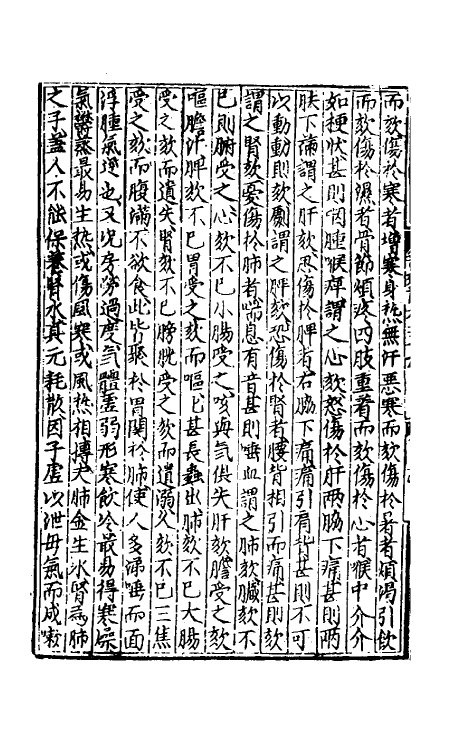 而欬傷於寒者增寒身热無汗悪寒而欬傷於暑者煩渴引飲
而欬傷於濕者骨節煩疼四肢重着而欬傷於心者喉中介介
如梗状甚則咽腫喉痺謂之心欬怒傷於肝两脇下痛甚則两
胠下滿謂之肝欬思傷於脾者右脇下痛痛引肩背甚則不可
以動動則欬劇謂之脾欬恐傷於腎者腰背相引而痛甚則欬
謂之腎欬憂傷於肺者喘息有音甚則唾血謂之肺欬臟欬不
已則腑受之心欬不已小腸受之欬與气俱失肝欬膽受之欬
嘔膽汁脾欬不已胃受之欬而嘔嘔甚長蟲出肺欬不已大腸
受之欬而遺失腎欬不已膀胱受之欬而遺溺久欬不已三焦
受之欬而腹滿不欲食此皆聚於胃関於肺使人多涕唾而面
浮腫氣逆也又况房勞過度气體虚弱形寒飲冷最易得寒燥
氣欝蒸最易生热或傷風寒或風热相搏夫肺金生水腎為肺
之子盖人不能保養腎水真元耗散因子虚以泄毋氣而成嗽